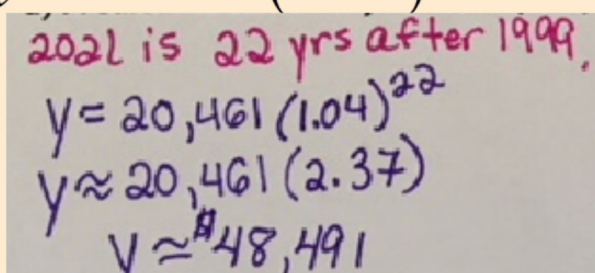 2021 is 22 yrs after 1999.
y = 20,461 (1.04)^22
y ≈ 20,461 (2.37)
y ≈ $48,491